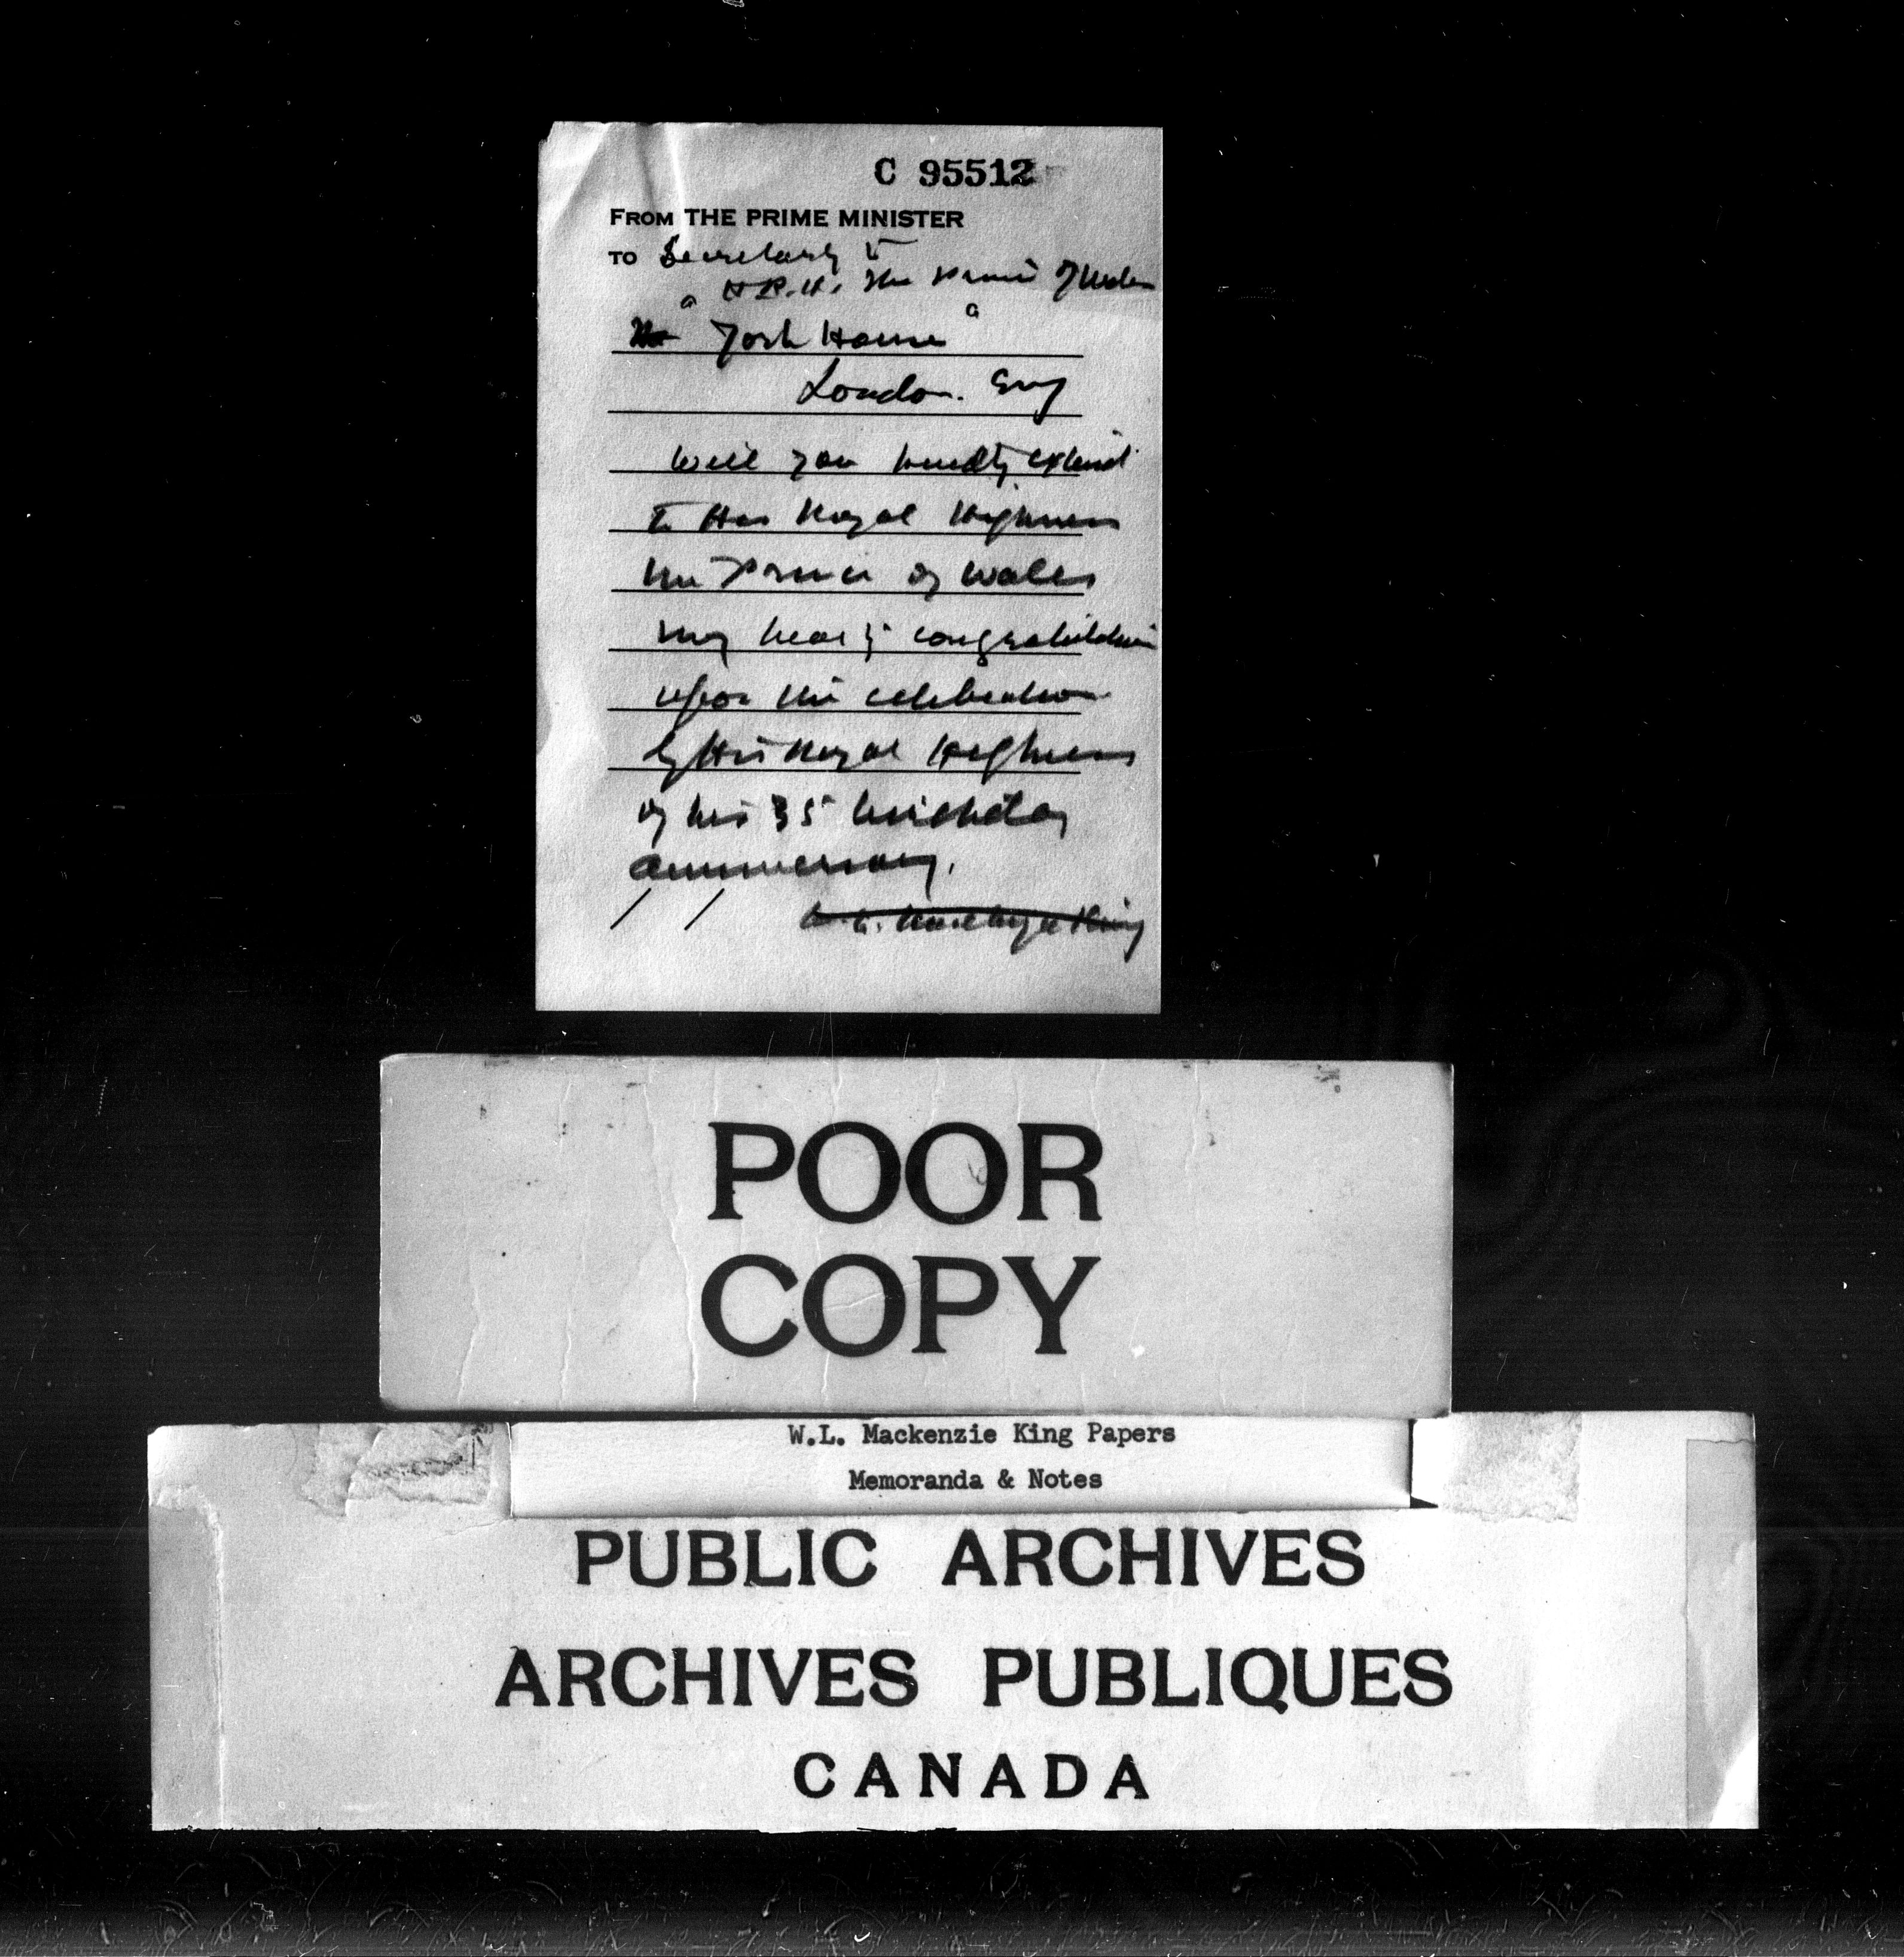 C 95512
FROM THE PRIME MINISTER
TO Secretary to
H.R.H. The Prince of Wales
" York House "
London. Eng
Will you kindly extend
to His Royal Highness
the Prince of Wales
my hearty congratulations
upon the celebration
by His Royal Highness
of his 35 birthday
anniversary.
W. L. Mackenzie King
POOR
COPY
W.L. Mackenzie King Papers
Memoranda & Notes
PUBLIC ARCHIVES
ARCHIVES PUBLIQUES
CANADA